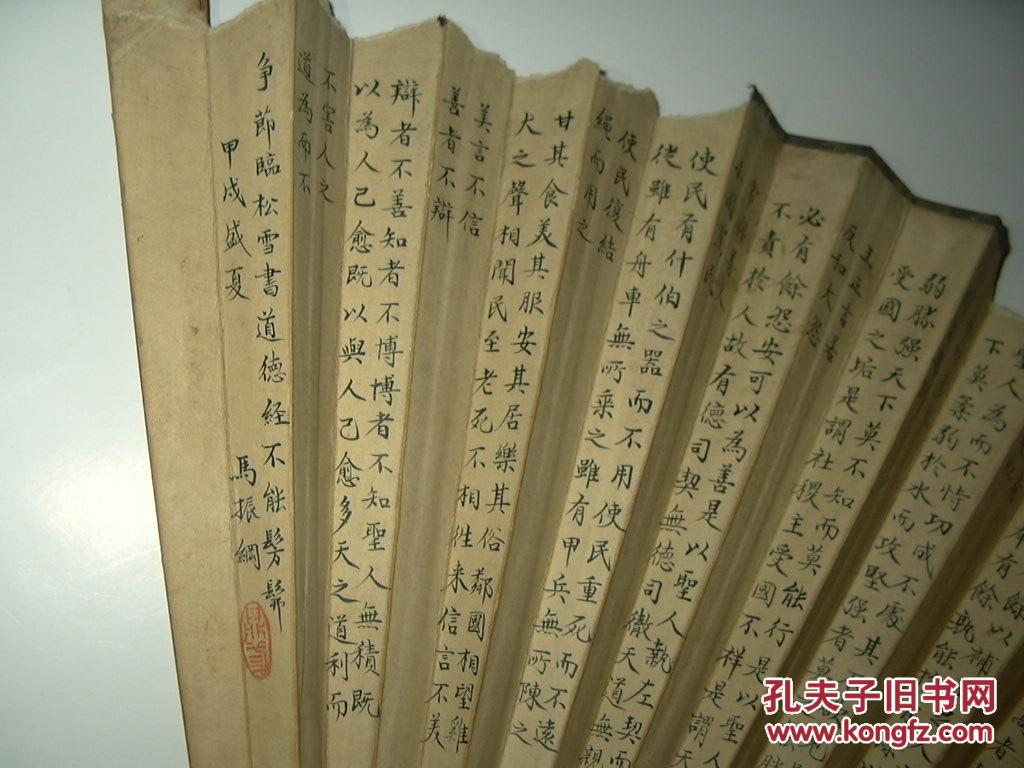 有餘以補
餘孰能
人為而不恃功成不處其
下莫柔弱於水而攻堅强者莫
弱勝强天下莫不知而莫能行是以聖人
受國之垢是謂社稷主受國不祥是謂天
王正言若
反和大怨
必有餘怨安可以為善是以聖人執左契而
不責於人故有德司契無德司徹天道無親
常與善人
小國寡民
使民有什伯之器而不用使民重死而不遠
徙雖有舟車無所乘之雖有甲兵無所陳之
使民復結
繩而用之
甘其食美其服安其居樂其俗鄰國相望雞
犬之聲相聞民至老死不相徃来信言不美
美言不信
善者不辯
辯者不善知者不博博者不知聖人無積既
以為人己愈既以與人己愈多天之道利而
不害人之
道為而不
争節臨松雪書道德经不能髣髴
甲戌盛夏
馬振綱
孔夫子旧书网
www.kongfz.com